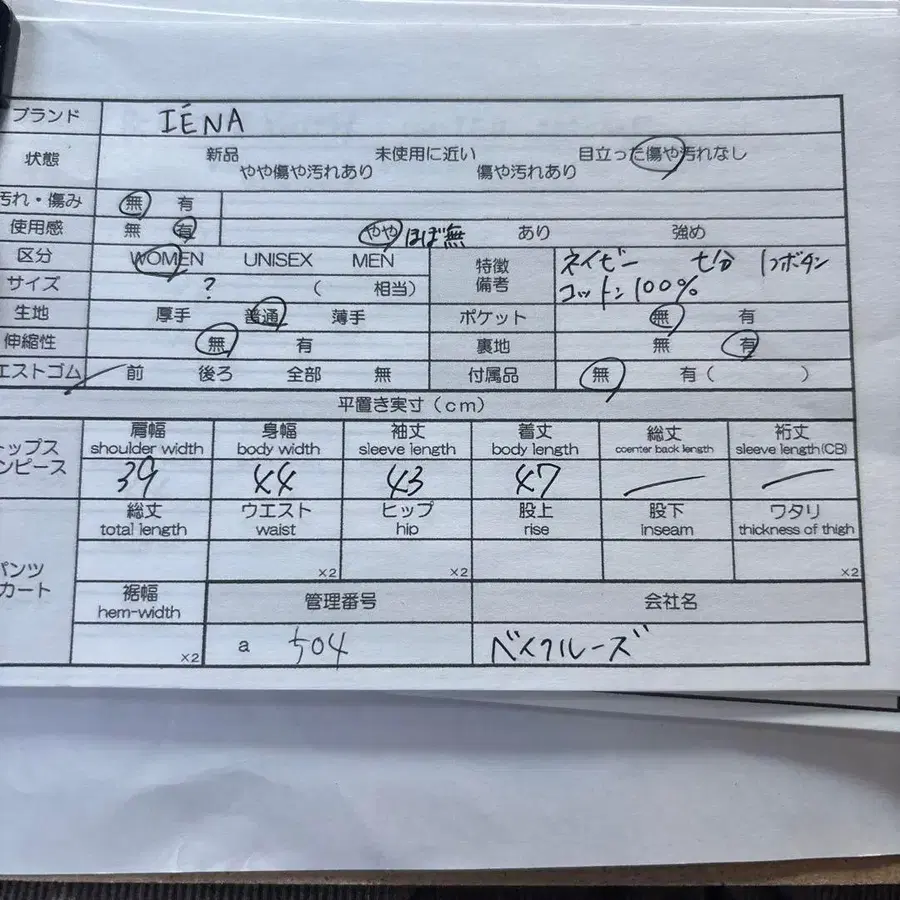 ブランド IÉNA
状態 新品 未使用に近い 目立った傷や汚れなし
やや傷や汚れあり 傷や汚れあり
汚れ・傷み 無 有
使用感 無 有 やや ほぼ無 あり 強め
区分 WOMEN UNISEX MEN
サイズ ? ( 相当)
特徴 ネイビー 七分 1つボタン
備考 コットン100%
生地 厚手 普通 薄手 ポケット 無 有
伸縮性 無 有 裏地 無 有
エストゴム 前 後ろ 全部 無 付属品 無 有( )
平置き実寸(cm)
トップス
ンピース
肩幅 身幅 袖丈 着丈 総丈 裄丈
shoulder width body width sleeve length body length center back length sleeve length(CB)
39 44 43 47
パンツ
カート
総丈 ウエスト ヒップ 股上 股下 ワタリ
total length waist hip rise inseam thickness of thigh
×2 ×2 ×2
裾幅 管理番号 会社名
hem-width
×2 a 504 ベイクルーズ